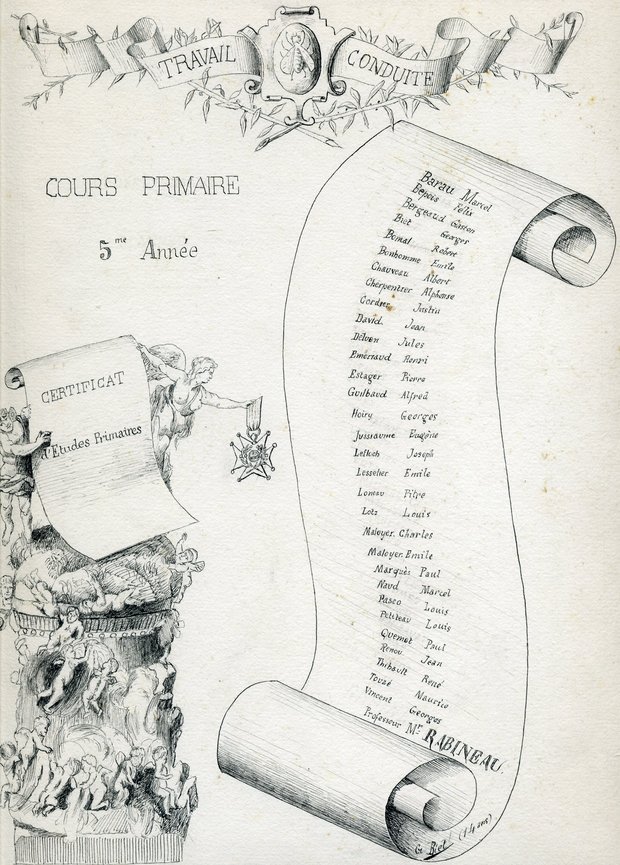 TRAVAIL CONDUITE
COURS PRIMAIRE
5me Année
CERTIFICAT
d'Etudes Primaires
Barau Marcel
Bepois Félix
Bergeaud Gaston
Biet Georges
Bomal Robert
Bonhomme Emile
Chauveau Albert
Cherpentier Alphonse
Cordier Justin
David Jean
Delvon Jules
Emeriaud Henri
Estager Pierre
Guilbaud Alfred
Hoiry Georges
Jussiaume Eugène
Lefloch Joseph
Lesselier Emile
Loneau Pitre
Lotz Louis
Maloyer Charles
Maloyer Emile
Marquès Paul
Naud Marcel
Pasco Louis
Petiteau Louis
Quemet Paul
Renou Jean
Thibault René
Touzé Maurice
Vincent Georges
Professeur Mr RABINEAU
G. Biet (14 ans)